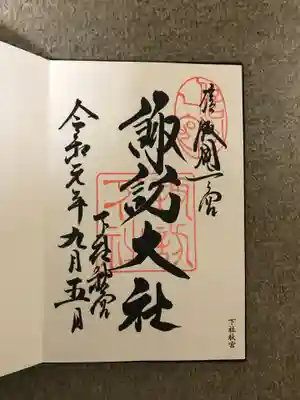 信濃國一之宮
諏訪大社
下社秋宮
令和元年九月五日
下社秋宮